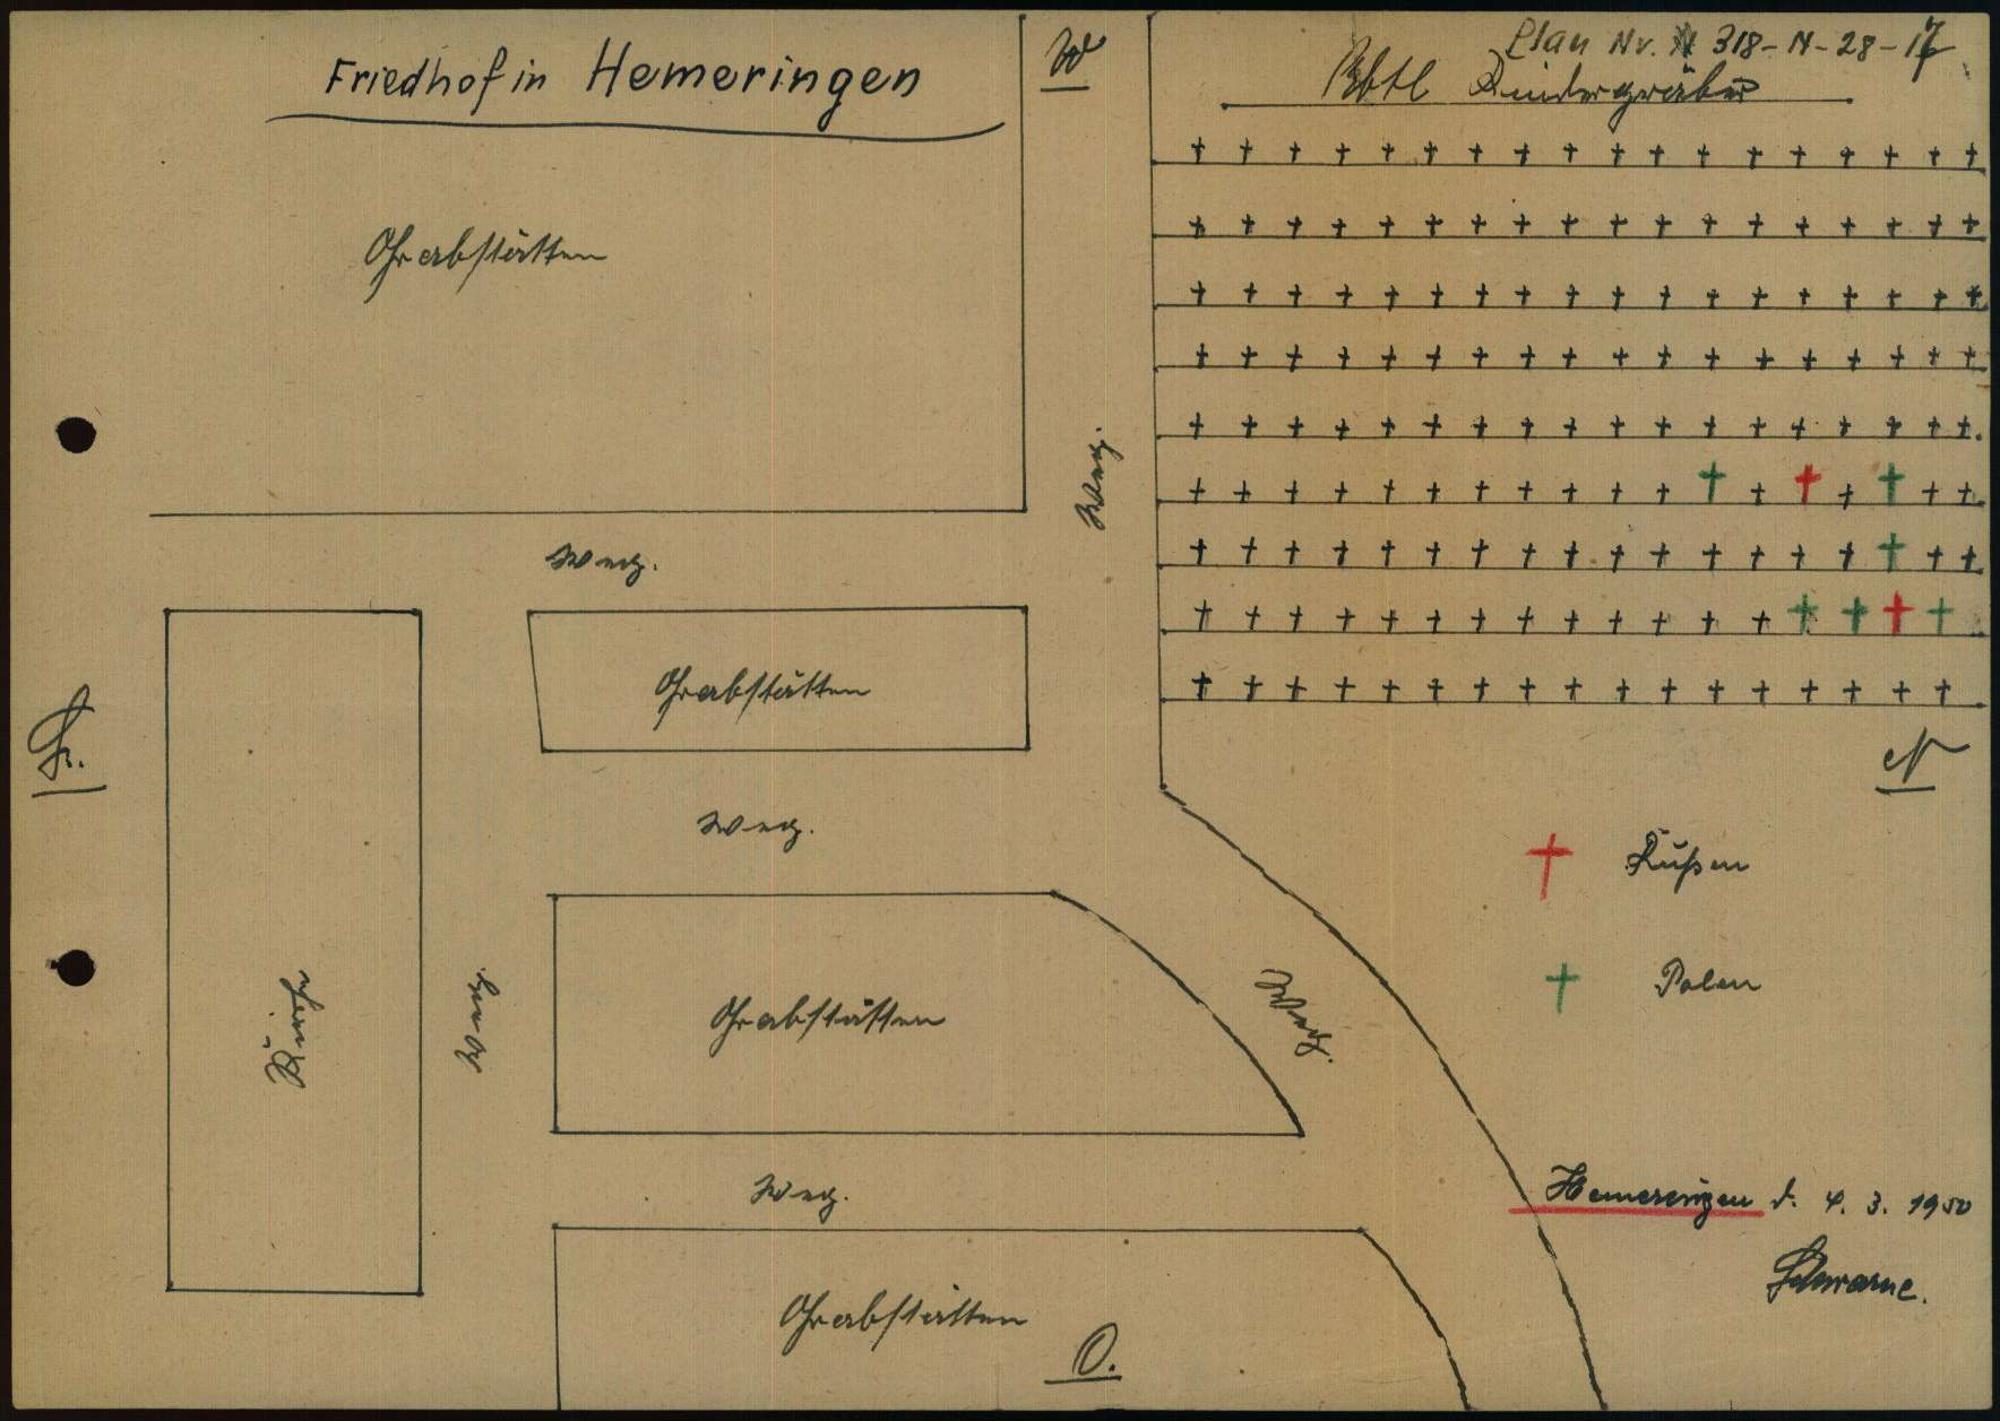 Friedhof in Hemeringen
W
Plan Nr. 318-N-28-17
Abtl Kindergräber
Grabstätten
Weg.
Weg.
Grabstätten
S.
N
Weg.
Rußen
Grabstätten
Weg.
Weg.
Polen
Kirche
Weg.
Hemeringen d. 4. 3. 1950
Grabstätten
O.